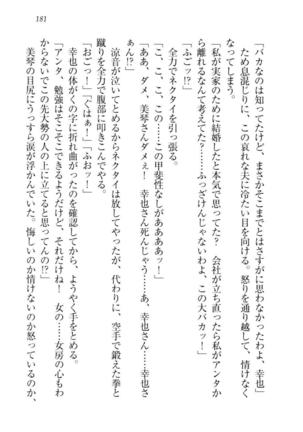 181
「バカなのは知ってたけど、まさかそこまでとはさすがに思わなかったわよ、幸也」
ため息混じりに、この哀れな夫に冷たい目を向ける。怒りを通り越して、情けなく
なってしまう。
「私が実家のために結婚したと本気で思ってた!?　会社が立ち直ったら私がアンタか
ら離れるなんて考えてた?……ふっざけんじゃないわよ、この大バカッ!」
「ふごッ!?」
全力でネクタイを引っ張る。
「こ、こ、こ、この甲斐性なしがああああッ!」
「ああ、ダメ、美琴さんダメェ!　幸也さん死んじゃう……あ、幸也さん……幸也さ
ぁん!?」
涼音が泣いてとめるからネクタイは放してやったが、代わりに、空手で鍛えた拳と
蹴りを全力で腹部に叩きこんでやる。
「おごっ!」「ぐはぁ!」「ふおッ!」
幸也の身体がくの字に折れ曲がったのを確認してから、ようやく手をとめる。
「アンタ、勉強はそこそこできるようだけど、それだけね!　女の……女房の心もわ
からないでこの先大勢の人の上に立てると思ってんの!?」
美琴の目尻にうっすら涙が浮かんでいた。悔しいのか情けないのか怒っているのか、